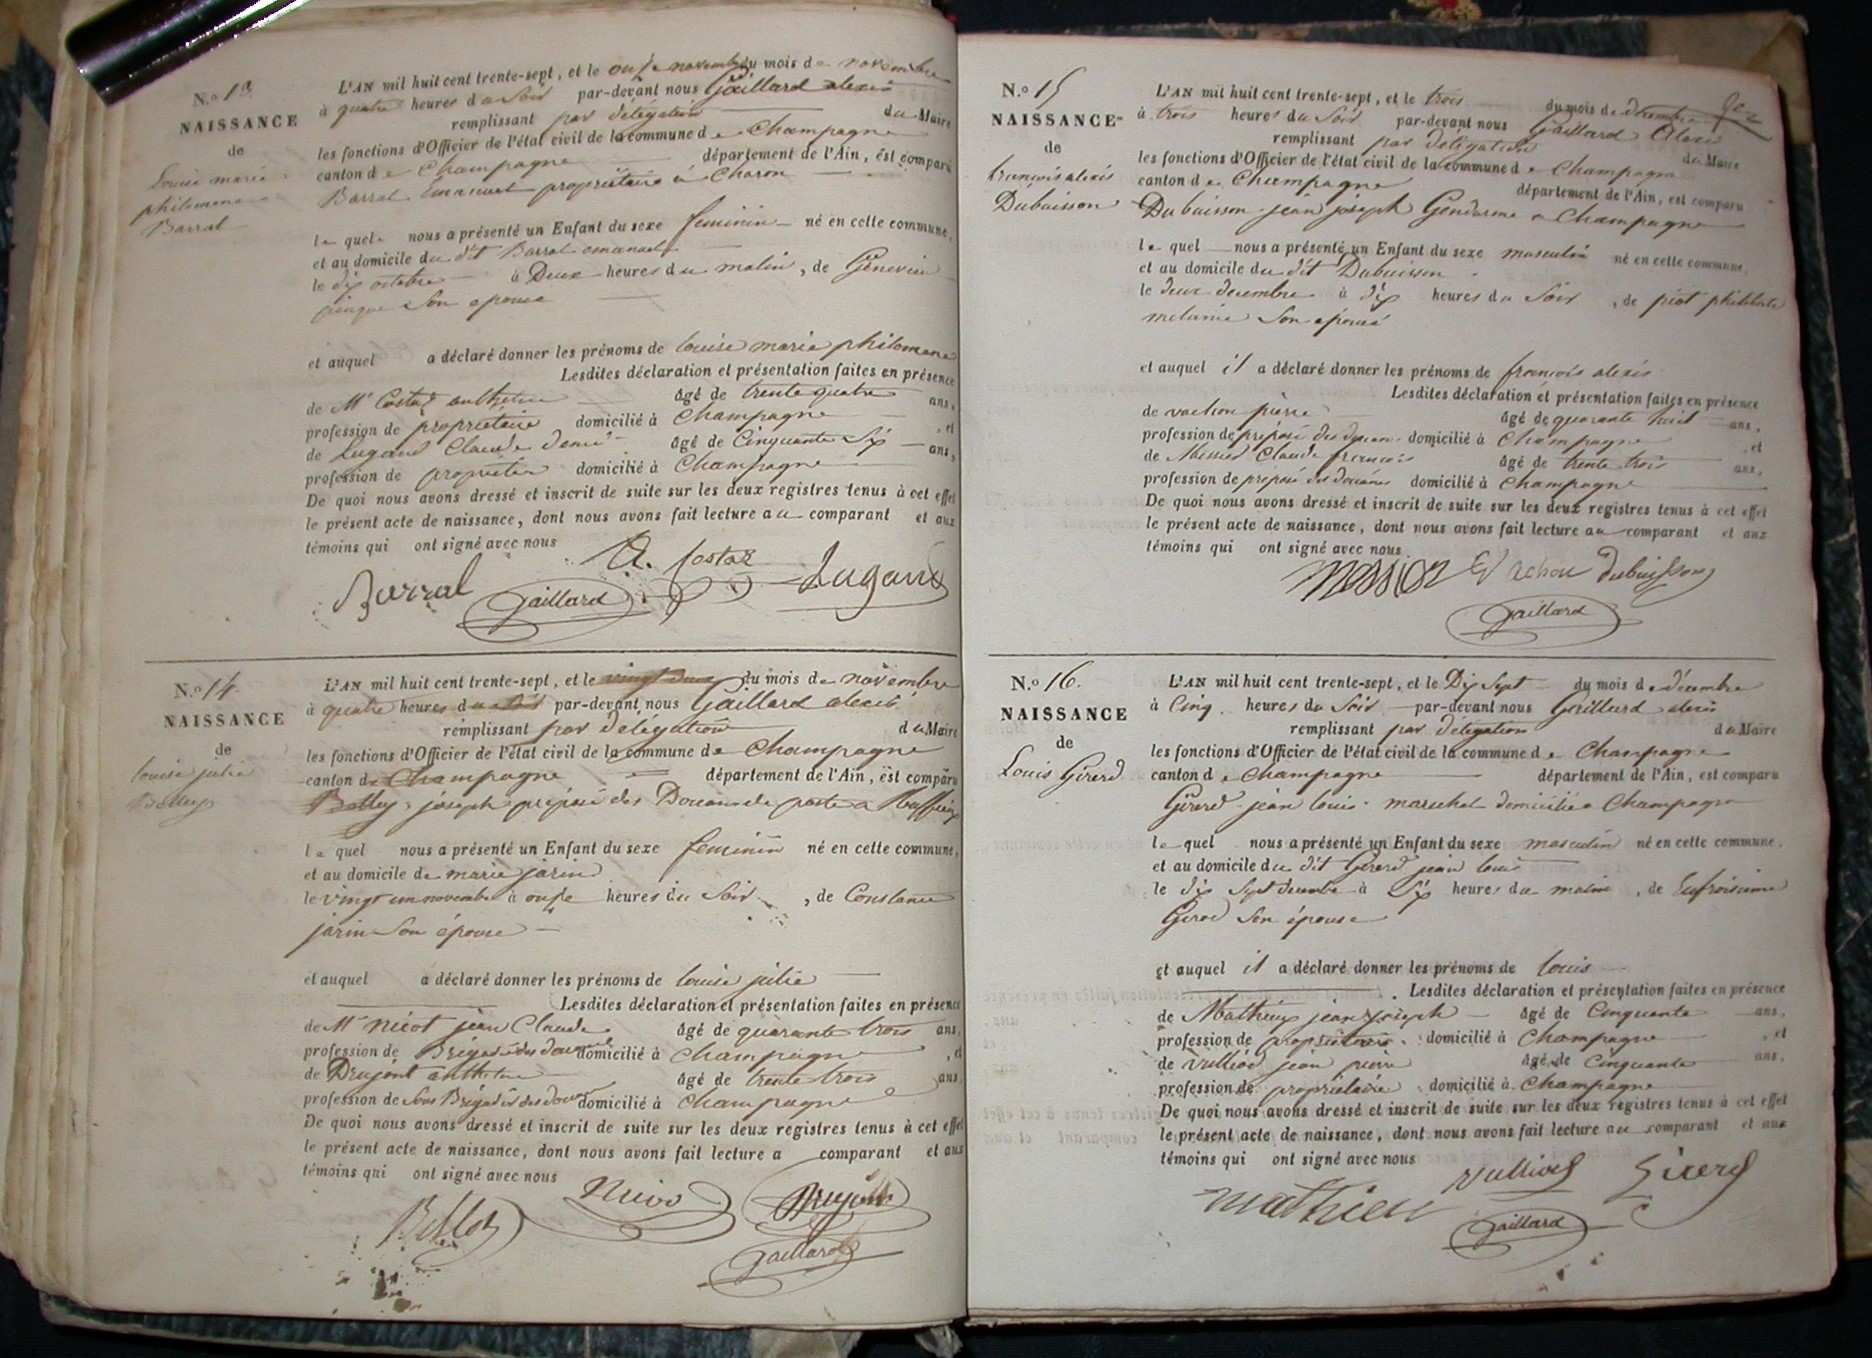 N.o 13
NAISSANCE
de
Louise marie
philomene
Barral
L'AN mil huit cent trente-sept, et le onze novembre du mois de novembre
à quatre heures du soir par-devant nous Gaillard alexis
remplissant par délégation du Maire
les fonctions d'Officier de l'état civil de la commune de Champagne
canton de Champagne département de l'Ain, est comparu
Barral Emanuel propriétaire à Charon
le quel nous a présenté un Enfant du sexe feminin né en cette commune,
et au domicile du dit Barral emanuel
le dix octobre à Deux heures du matin, de Genevieve
son epouse
et auquel a déclaré donner les prénoms de louise marie philomene
Lesdites déclaration et présentation faites en présence
de Mr Costaz anthelme âgé de trente quatre ans,
profession de propriétaire domicilié à Champagne , et
de Lugand Claude âgé de Cinquante Six ans,
profession de propriétaire domicilié à Champagne
De quoi nous avons dressé et inscrit de suite sur les deux registres tenus à cet effet
le présent acte de naissance, dont nous avons fait lecture au comparant et aux
témoins qui ont signé avec nous
A. Costaz
Barral Gaillard Lugand
N.o 14
NAISSANCE
de
louise julie
L'AN mil huit cent trente-sept, et le vingt deux du mois de novembre
à quatre heures du soir par-devant nous Gaillard alexis
remplissant par délégation du Maire
les fonctions d'Officier de l'état civil de la commune de Champagne
canton de Champagne département de l'Ain, est comparu
joseph préposé des Douanes de poste a Ruffieux
le quel nous a présenté un Enfant du sexe feminin né en cette commune,
et au domicile de marie jarin
le vingt un novembre à onze heures du Soir , de Constance
jarin Son épouse
et auquel a déclaré donner les prénoms de louise julie
Lesdites déclaration et présentation faites en présence
de Mr nicot jean Claude âgé de quarante trois ans,
profession de Brigadier des douanes domicilié à Champagne , et
de Drujont anthelme âgé de trente trois ans
profession de Sous Brigadier des douanes domicilié à Champagne
De quoi nous avons dressé et inscrit de suite sur les deux registres tenus à cet effet
le présent acte de naissance, dont nous avons fait lecture a comparant et aux
témoins qui ont signé avec nous
Gaillard
N.o 15
NAISSANCE
de
francois alexis
Dubuisson
L'AN mil huit cent trente-sept, et le trois du mois de décembre
à trois heures du Soir par-devant nous Gaillard Alexis
remplissant par délégation du Maire
les fonctions d'Officier de l'état civil de la commune de Champagne
canton de Champagne département de l'Ain, est comparu
Dubuisson jean joseph Gendarme a Champagne
le quel nous a présenté un Enfant du sexe masculin né en cette commune,
et au domicile du dit Dubuisson
le deux decembre à dix heures du Soir , de piot philiberte
melanie Son épouse
et auquel il a déclaré donner les prénoms de francois alexis
Lesdites déclaration et présentation faites en présence
de vachon pierre âgé de quarante huit ans,
profession de préposé des douanes domicilié à Champagne , et
de Claude francois âgé de trente trois ans,
profession de préposé des douanes domicilié à Champagne
De quoi nous avons dressé et inscrit de suite sur les deux registres tenus à cet effet
le présent acte de naissance, dont nous avons fait lecture au comparant et aux
témoins qui ont signé avec nous
dubuisson
Gaillard
N.o 16.
NAISSANCE
de
Louis Girerd
L'AN mil huit cent trente-sept, et le Dix Sept du mois de décembre
à Cinq heures du Soir par-devant nous Gaillard alexis
remplissant par délégation du Maire
les fonctions d'Officier de l'état civil de la commune de Champagne
canton de Champagne département de l'Ain, est comparu
Girerd jean louis marechal domicilié a Champagne
le quel nous a présenté un Enfant du sexe masculin né en cette commune,
et au domicile du dit Girerd jean louis
le dix Sept decembre à Six heures du matin , de Eufroisinne
Girod Son épouse
et auquel il a déclaré donner les prénoms de louis
Lesdites déclaration et présentation faites en présence
de Mathieu jean joseph âgé de Cinquante ans,
profession de propriétaire domicilié à Champagne , et
de vulliod jean pierre âgé de Cinquante ans,
profession de propriétaire domicilié à Champagne
De quoi nous avons dressé et inscrit de suite sur les deux registres tenus à cet effet
le présent acte de naissance, dont nous avons fait lecture au comparant et aux
témoins qui ont signé avec nous
mathieu vulliod Girerd
Gaillard